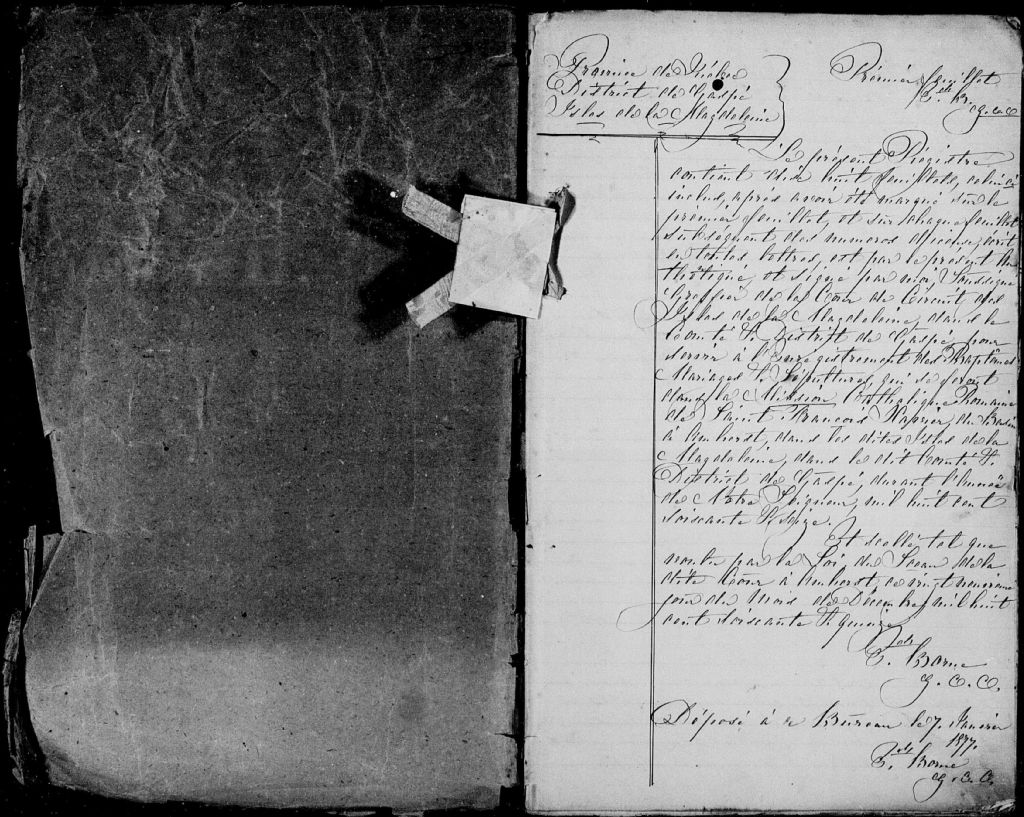 Province de Québec
District de Gaspé
Isles de la Magdeleine
Prémier feuillet
G.C.C.
Le présent Régistre
contient dix huit feuillets, celui ci
inclus, après avoir été marqué sur le
prémier feuillet, et sur chaque feuillet
subséquent des numéros d'icelui, écrit
en toutes lettres, est par le présent
et signé par moi, Soussigné
Greffier de la Cour de Circuit des
Isles de la Magdeleine, dans le
Comté & District de Gaspé, pour
servir à l'Enrégistrement des Baptêmes
Mariages & Sépultures, qui se feront
dans la Mission Catholique Romaine
de Saint François Xavier, du Bassin
à Amherst, dans les dites Isles de la
Magdeleine, dans le dit Comté &
District de Gaspé, durant l'Année
de Notre Seigneur, mil huit cent
soixante & seize.
Et scellé tel que
voulu par la Loi du Sceau de la
dite Cour à Amherst, ce vingt neuvième
jour du Mois de Décembre, mil huit
cent soixante & quinze.
Borne
G.C.C.
Déposé à ce Bureau le 7. Janvier
1877.
Borne
G.C.C.